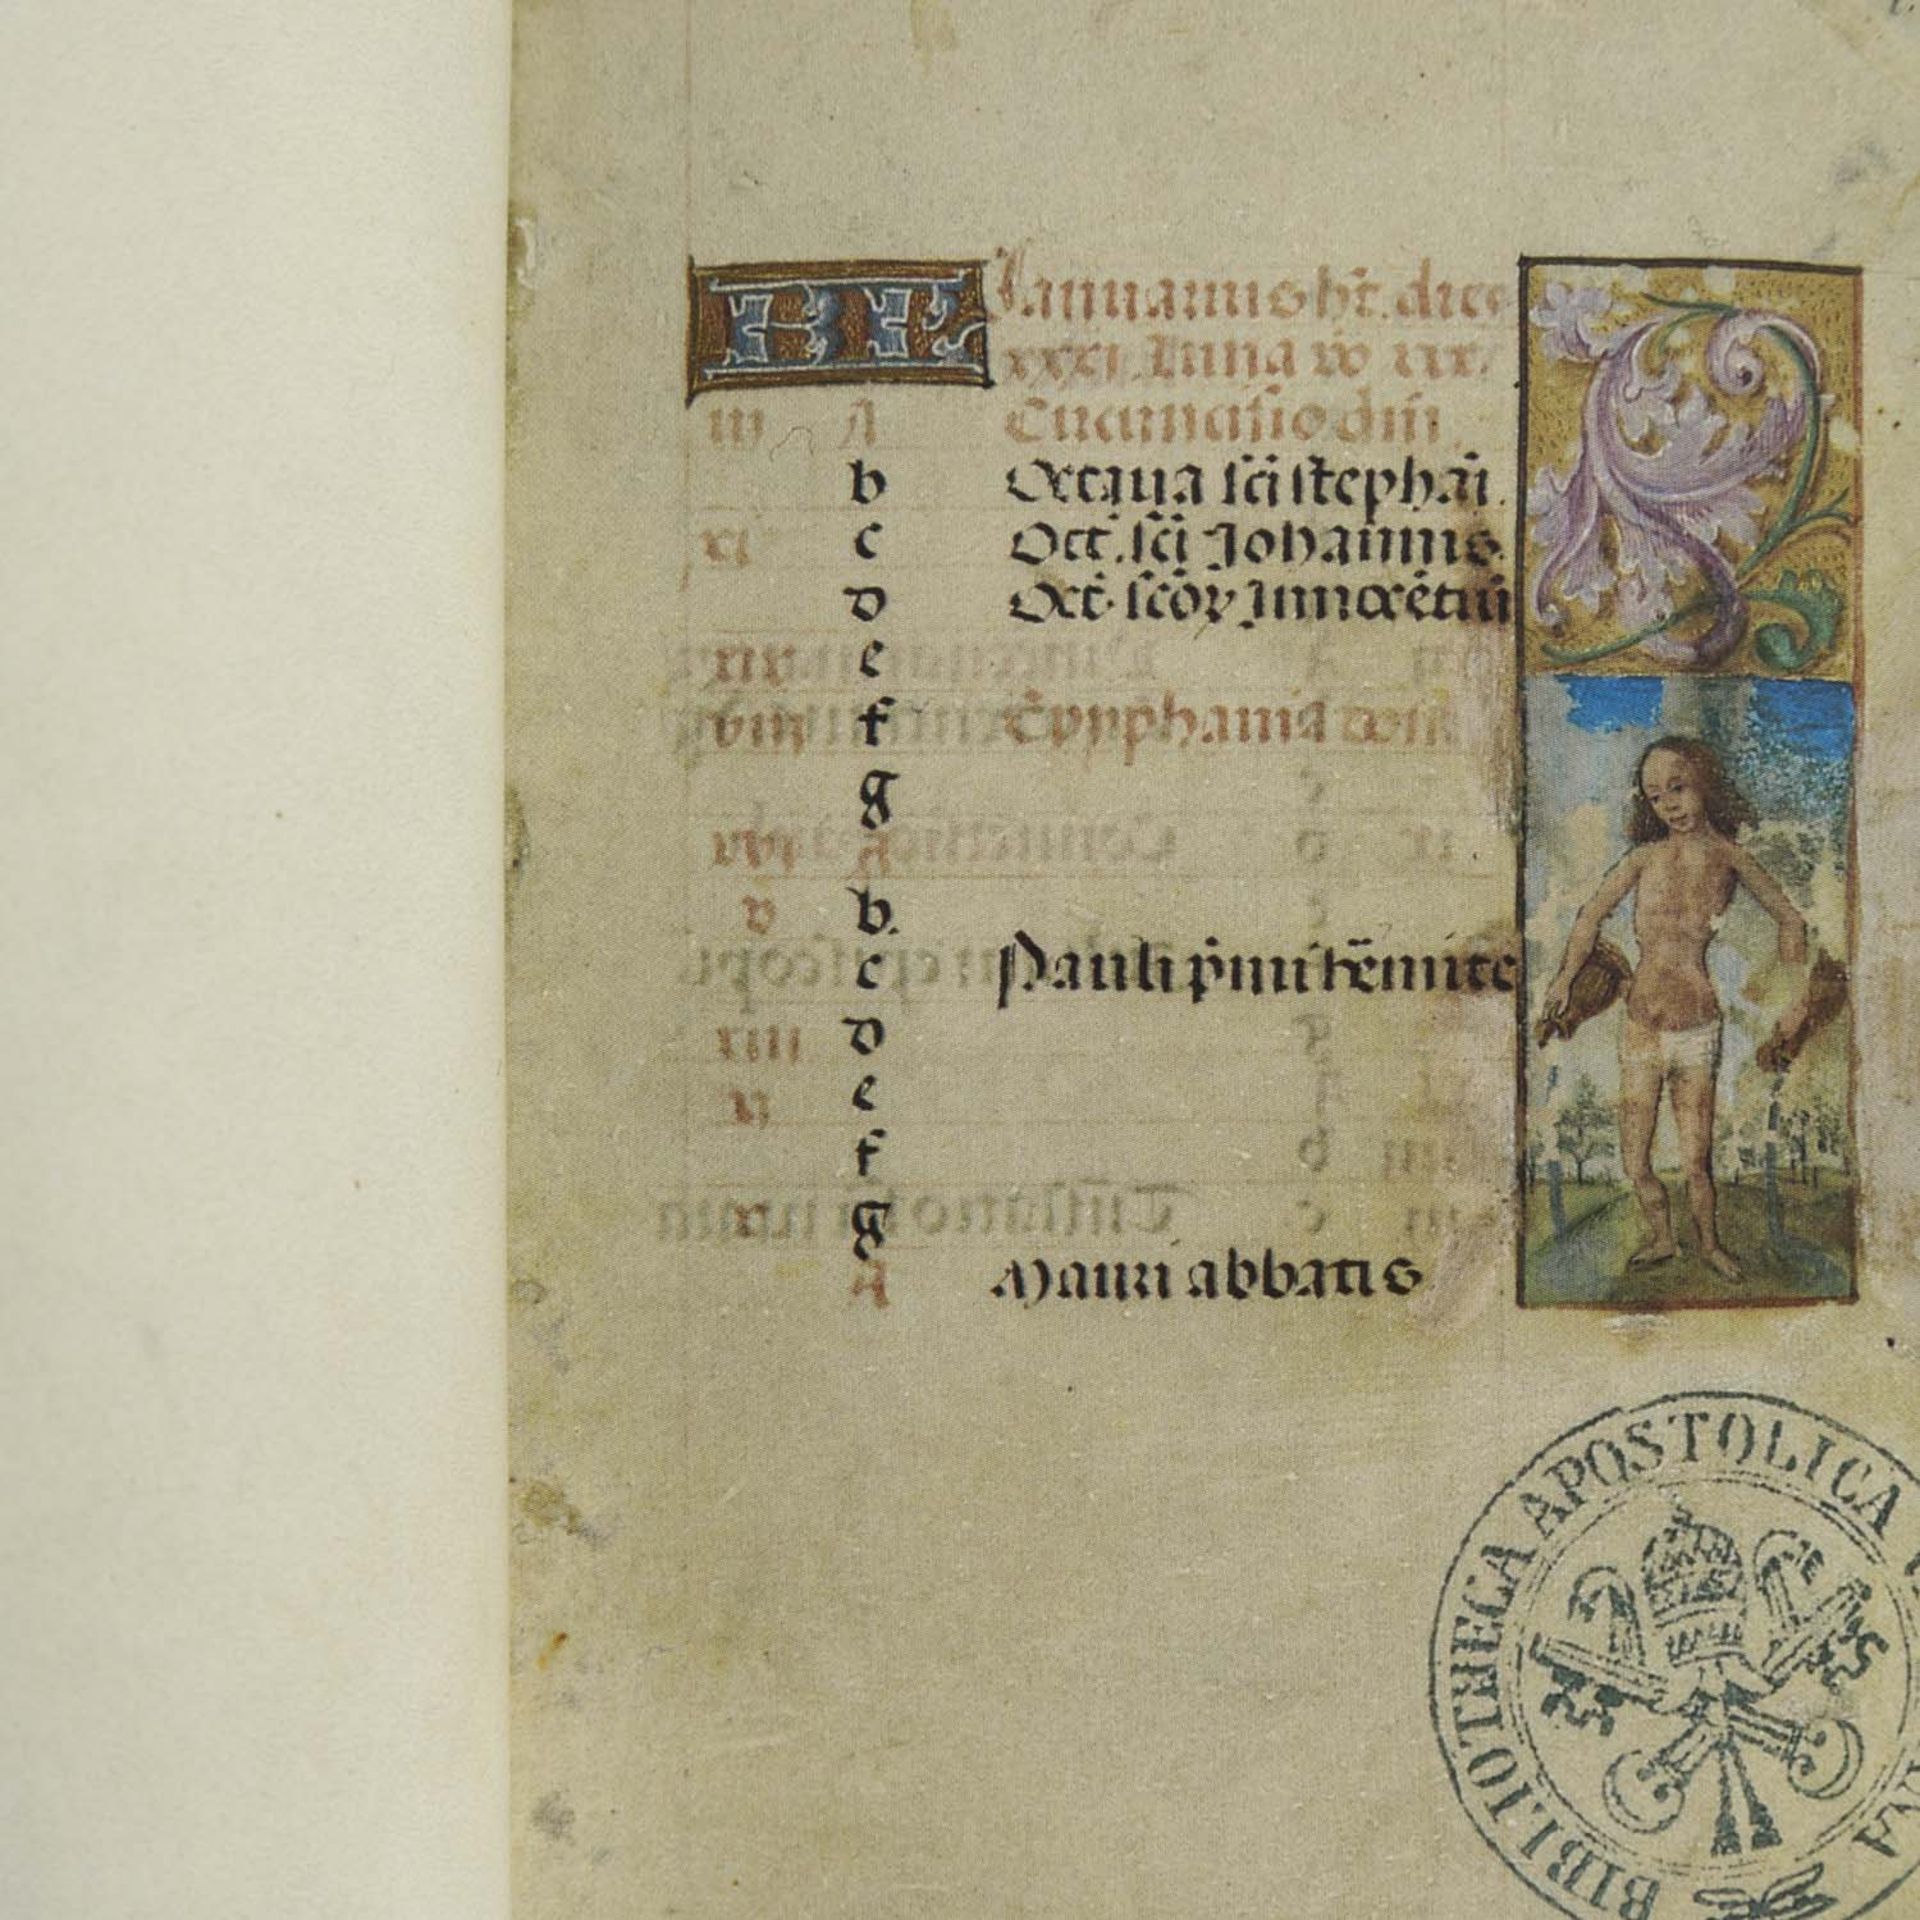 KL Januarius ht. dies
xxxi luna vo xxx.
iii A Circuncisio dni
b Octaua sci stephai.
xi c Oct. sci Johannis.
d Oct. scoꝝ Innocetiu
xix e
viii f Epyphania dni
g
xvi A
v b.
c Pauli pmi hemite
xiii d
ii e
f
x g
A Mauri abbatis
BIBLIOTHECA APOSTOLICA